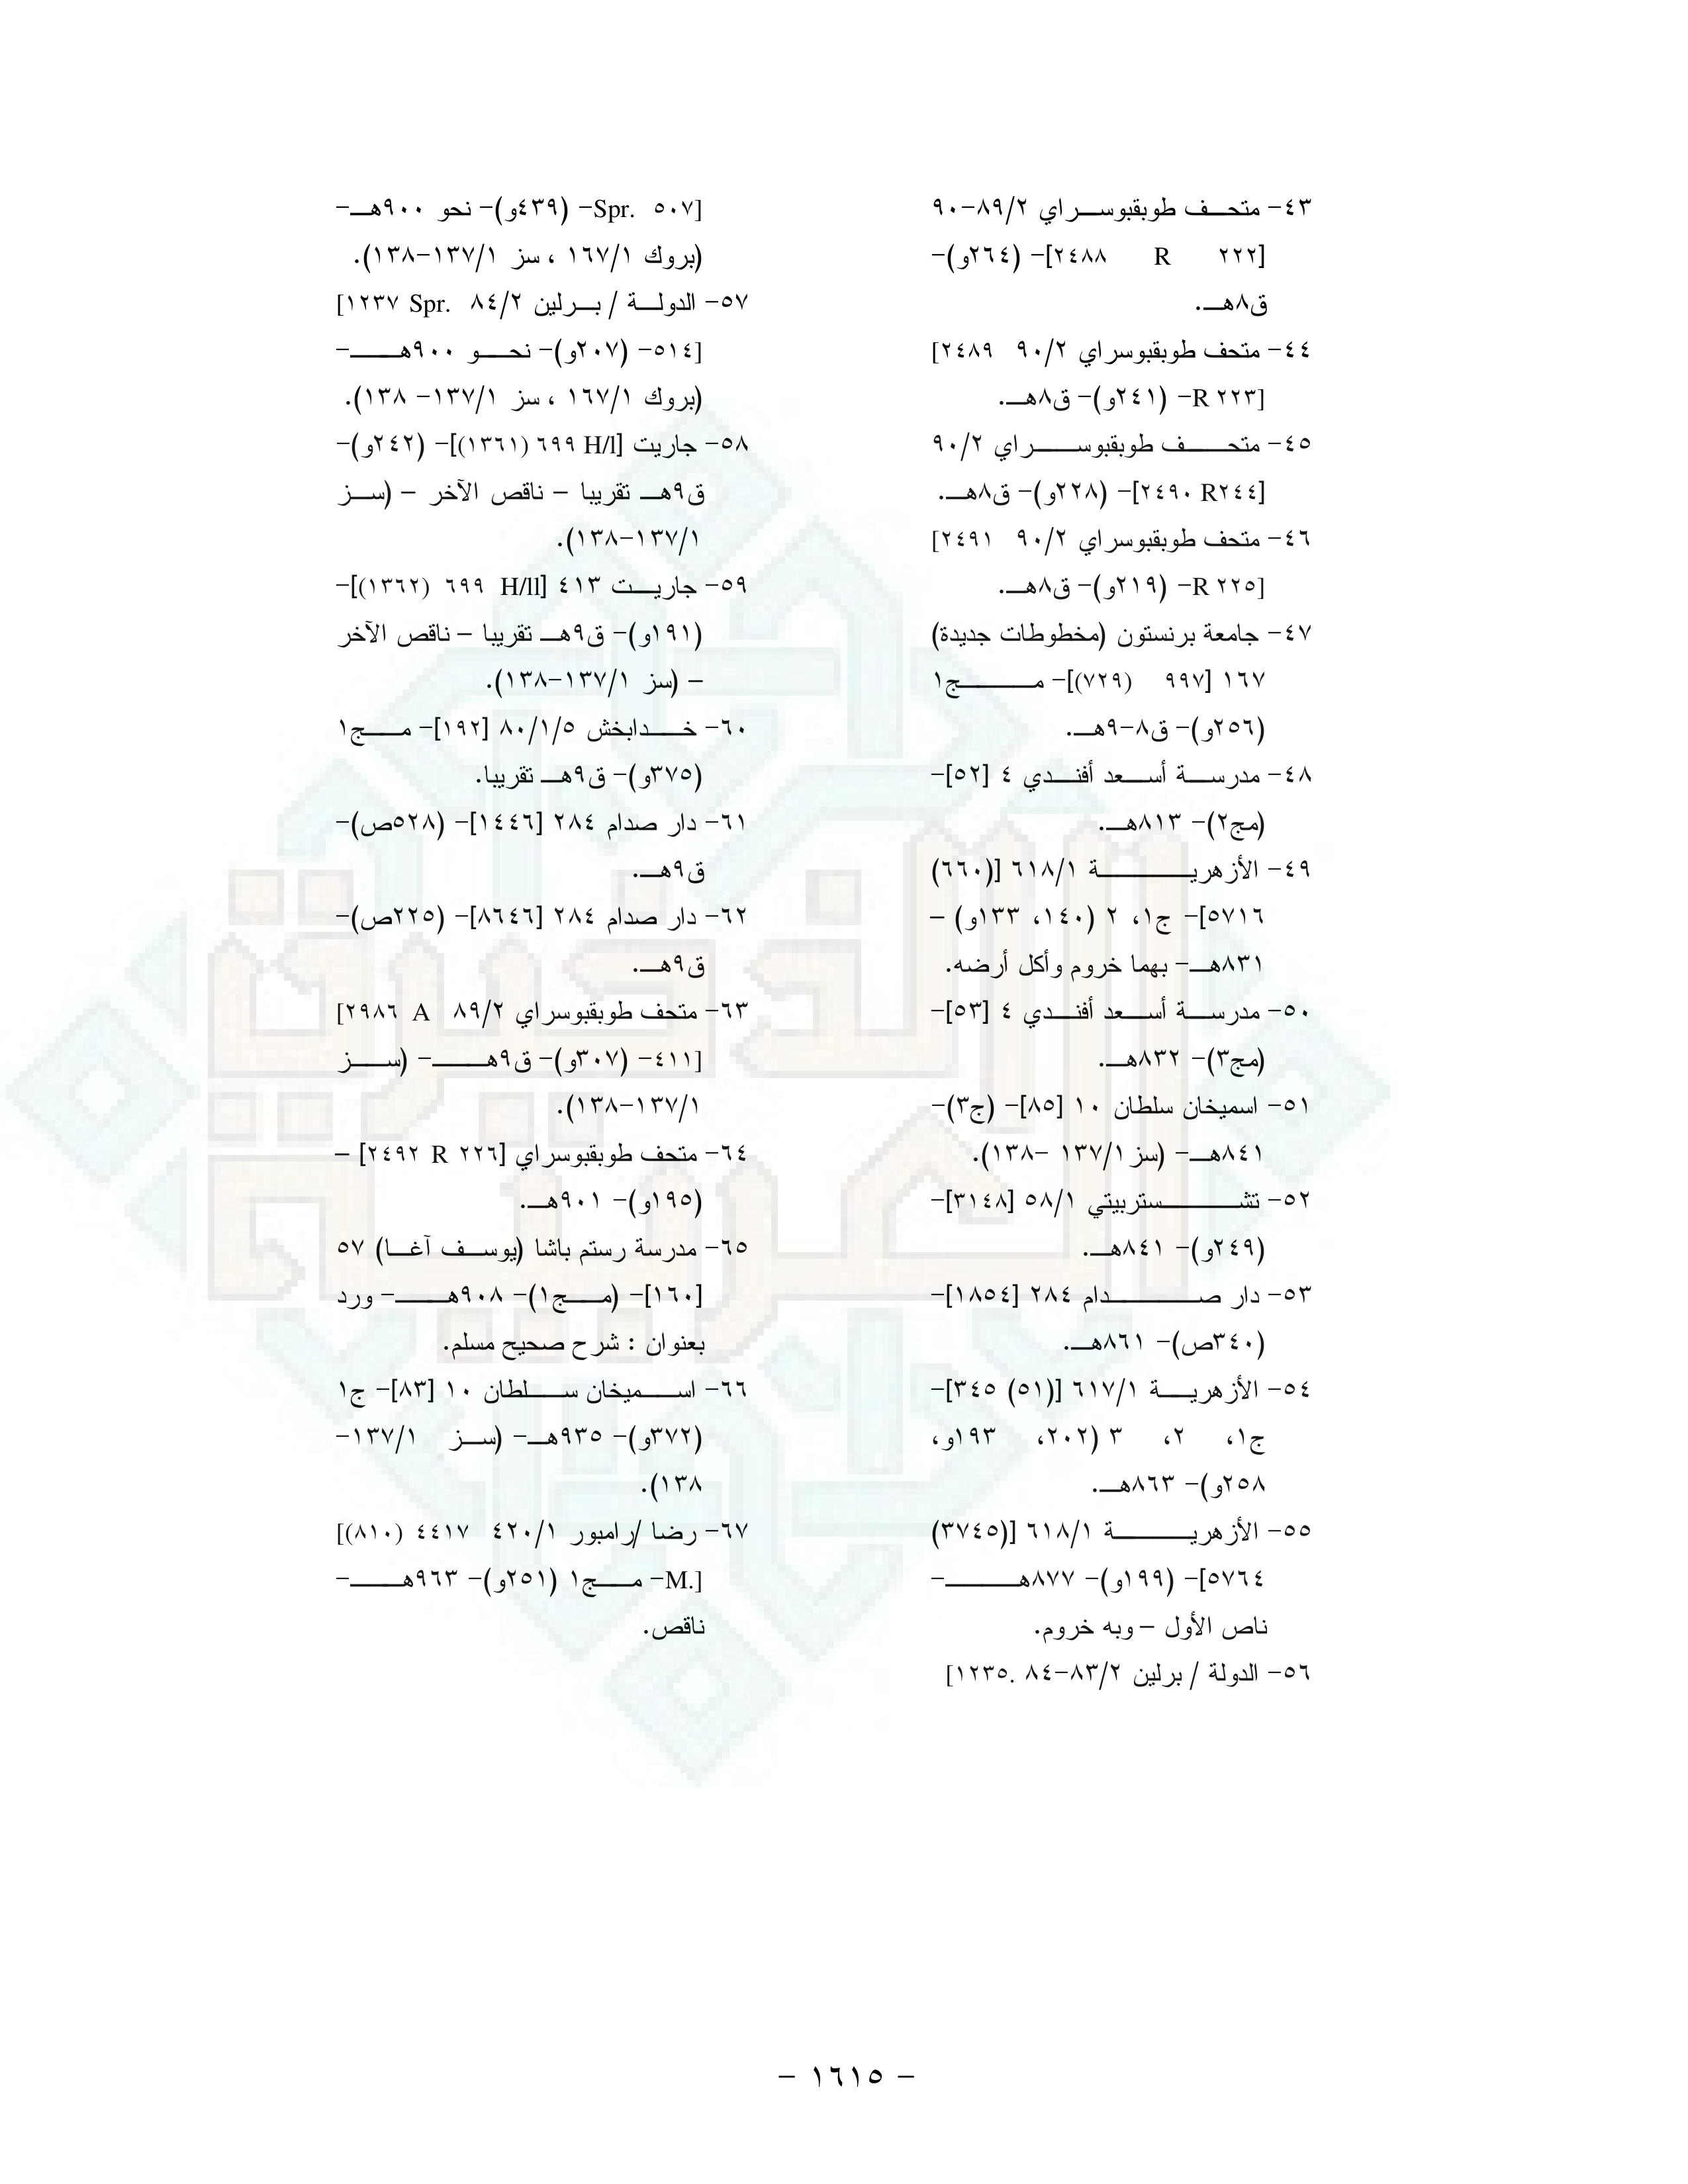 ٤٣- متحف طوبقبوسراي ٨٩/٢-٩٠
[٢٢٢ R ٢٤٨٨]- (٢٦٤و)-
ق٨هـ.
٤٤- متحف طوبقبوسراي ٩٠/٢ [٢٤٨٩
R ٢٢٣]- (٢٤١و)- ق٨هـ.
٤٥- متحف طوبقبوسراي ٩٠/٢
[R٢٤٤ ٢٤٩٠]- (٢٢٨و)- ق٨هـ.
٤٦- متحف طوبقبوسراي ٩٠/٢ [٢٤٩١
R ٢٢٥]- (٢١٩و)- ق٨هـ.
٤٧- جامعة برنستون (مخطوطات جديدة)
١٦٧ [٩٩٧ (٧٢٩)]- مج١
(٢٥٦و)- ق٨-٩هـ.
٤٨- مدرسة أسعد أفندي ٤ [٥٢]-
(مج٢)- ٨١٣هـ.
٤٩- الأزهرية ٦١٨/١ [(٦٦٠)
٥٧١٦]- ج١، ٢ (١٤٠، ١٣٣و) –
٨٣١هـ- بهما خروم وأكل أرضه.
٥٠- مدرسة أسعد أفندي ٤ [٥٣]-
(مج٣)- ٨٣٢هـ.
٥١- اسميخان سلطان ١٠ [٨٥]- (ج٣)-
٨٤١هـ- (سز ١٣٧/١ -١٣٨).
٥٢- تشستربيتي ٥٨/١ [٣١٤٨]-
(٢٤٩و)- ٨٤١هـ.
٥٣- دار صدام ٢٨٤ [١٨٥٤]-
(٣٤٠ص)- ٨٦١هـ.
٥٤- الأزهرية ٦١٧/١ [(٥١) ٣٤٥]-
ج١، ٢، ٣ (٢٠٢، ١٩٣و،
٢٥٨و)- ٨٦٣هـ.
٥٥- الأزهرية ٦١٨/١ [(٣٧٤٥)
٥٧٦٤]- (١٩٩و)- ٨٧٧هـ-
ناص الأول – وبه خروم.
٥٦- الدولة / برلين ٨٣/٢-٨٤ [١٢٣٥.
Spr. ٥٠٧]- (٤٣٩و)- نحو ٩٠٠هـ-
(بروك ١٦٧/١ ، سز ١٣٧/١-١٣٨).
٥٧- الدولة / برلين ٨٤/٢ [١٢٣٧ Spr.
٥١٤]- (٢٠٧و)- نحو ٩٠٠هـ-
(بروك ١٦٧/١ ، سز ١٣٧/١- ١٣٨).
٥٨- جاريت [H/l ٦٩٩ (١٣٦١)]- (٢٤٢و)-
ق٩هـ تقريبا – ناقص الآخر – (سز
١٣٧/١-١٣٨).
٥٩- جاريت ٤١٣ [H/ll ٦٩٩ (١٣٦٢)]-
(١٩١و)- ق٩هـ تقريبا – ناقص الآخر
– (سز ١٣٧/١-١٣٨).
٦٠- خدابخش ٨٠/١/٥ [١٩٢]- مج١
(٣٧٥و)- ق٩هـ تقريبا.
٦١- دار صدام ٢٨٤ [١٤٤٦]- (٥٢٨ص)-
ق٩هـ.
٦٢- دار صدام ٢٨٤ [٨٦٤٦]- (٢٢٥ص)-
ق٩هـ.
٦٣- متحف طوبقبوسراي ٨٩/٢ [٢٩٨٦ A
٤١١]- (٣٠٧و)- ق٩هـ- (سز
١٣٧/١-١٣٨).
٦٤- متحف طوبقبوسراي [٢٢٦ R ٢٤٩٢] –
(١٩٥و)- ٩٠١هـ.
٦٥- مدرسة رستم باشا (يوسف آغا) ٥٧
[١٦٠]- (مج١)- ٩٠٨هـ- ورد
بعنوان : شرح صحيح مسلم.
٦٦- اسميخان سلطان ١٠ [٨٣]- ج١
(٣٧٢و)- ٩٣٥هـ- (سز ١٣٧/١-
١٣٨).
٦٧- رضا /رامبور ٤٢٠/١ [(٨١٠) ٤٤١٧
M.]- مج١ (٢٥١و)- ٩٦٣هـ-
ناقص.
- ١٦١٥ -
الذخيرة
العربية